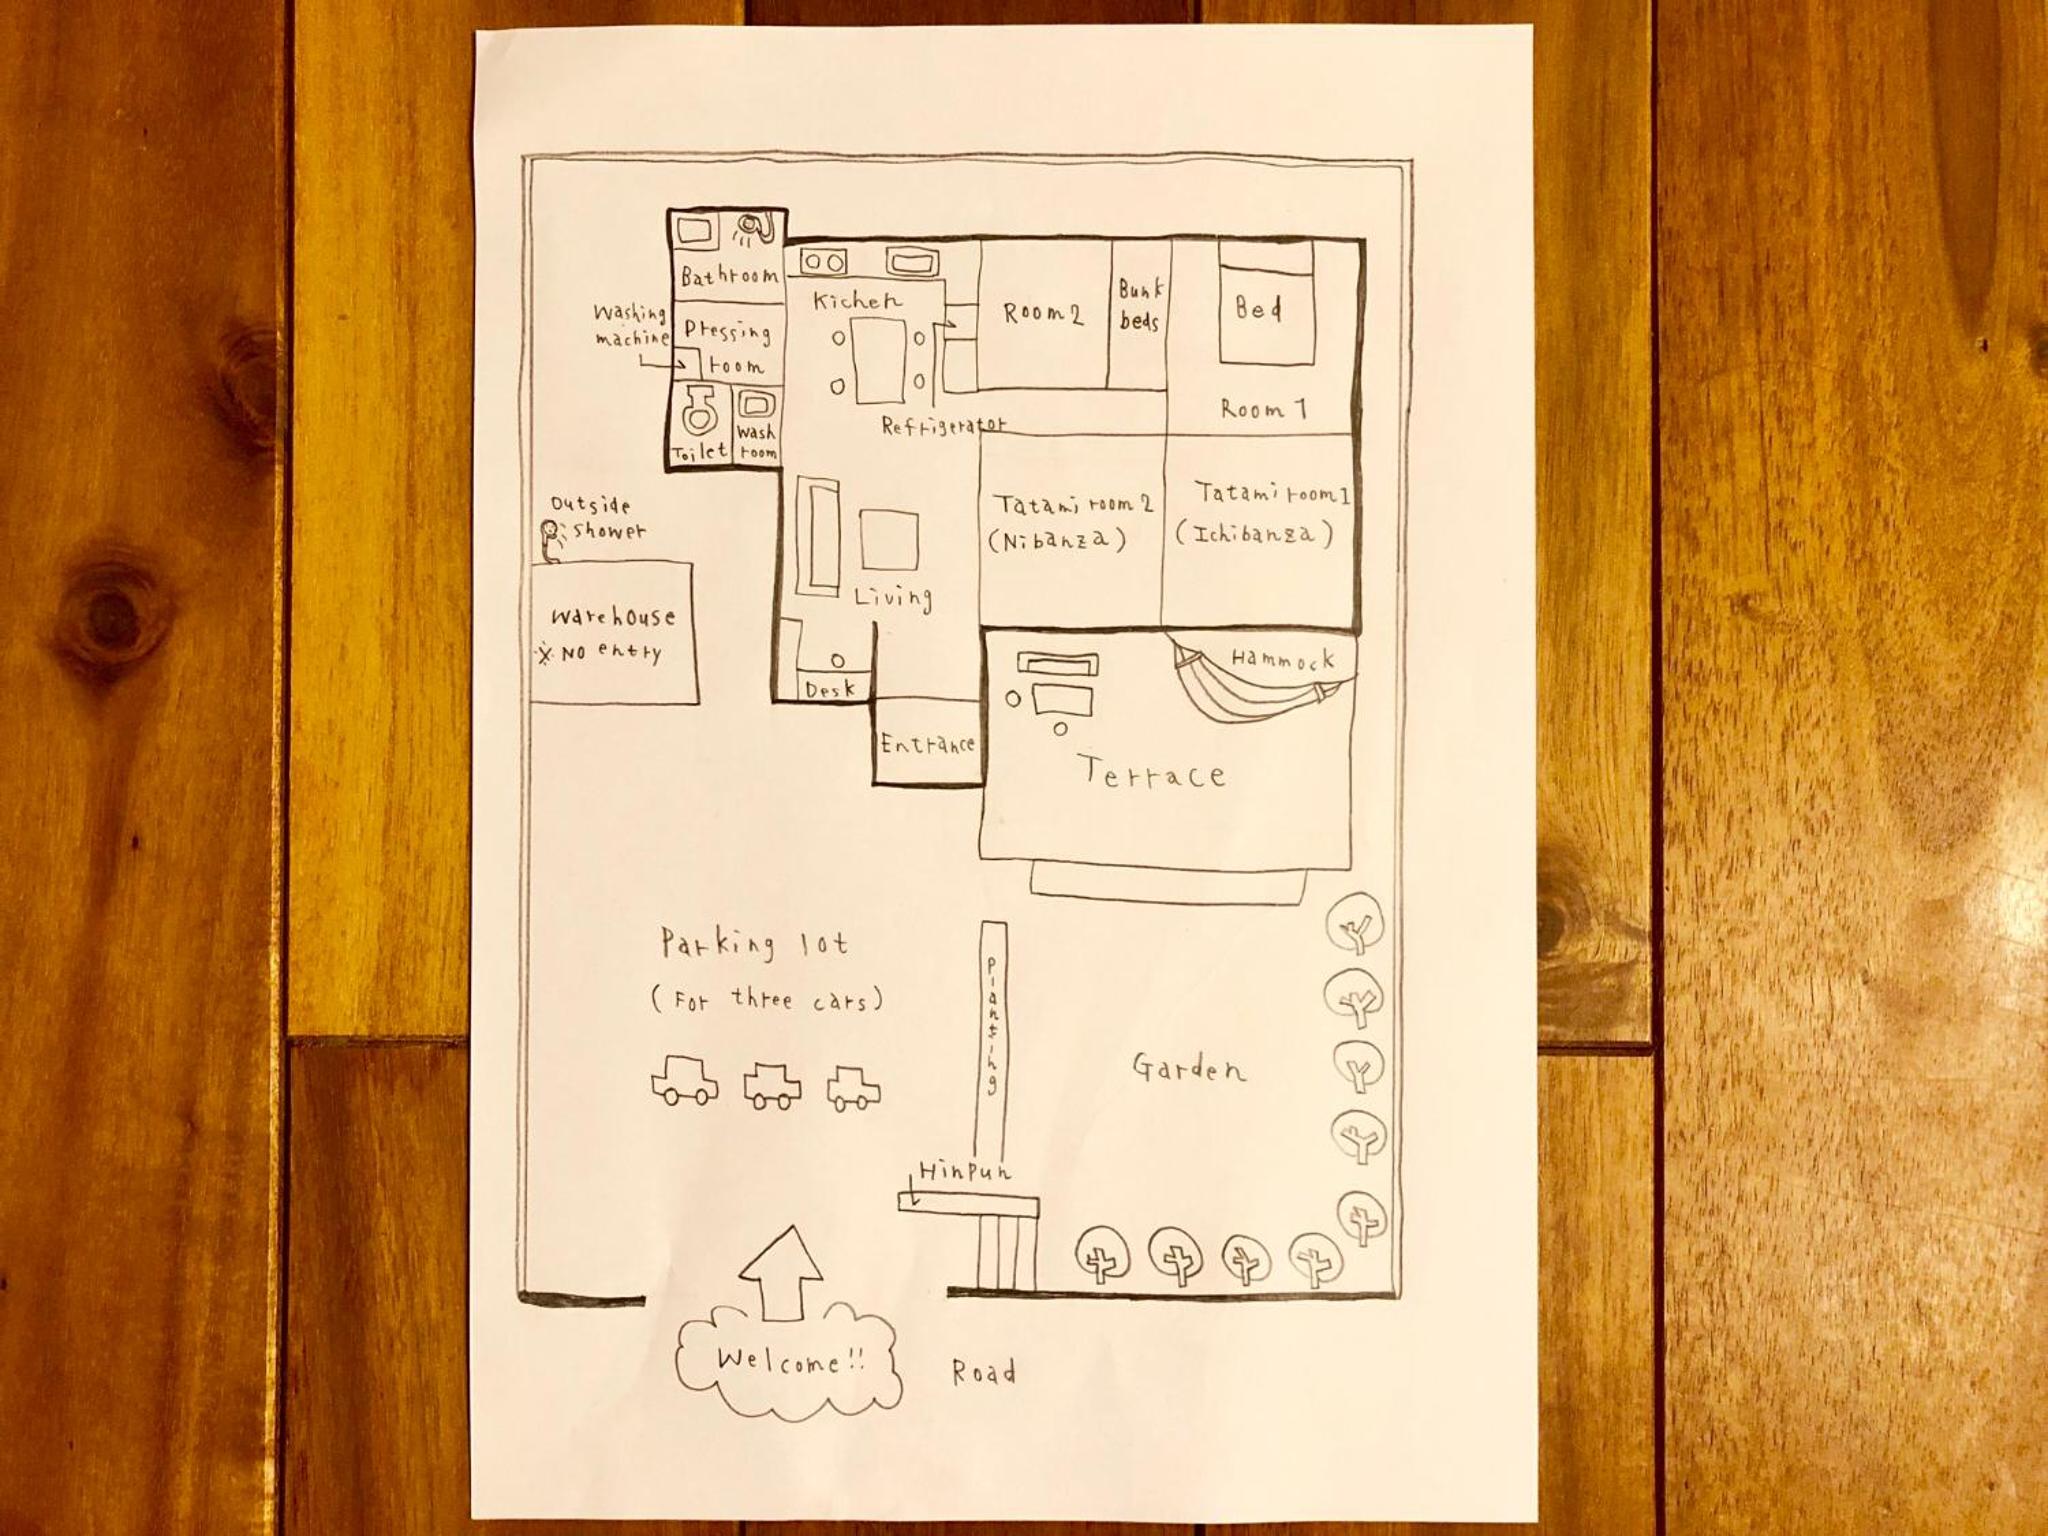 Bathroom
Kichen
Washing
machine
Dressing
room
Toilet
Wash
room
Refrigerator
Room2
Bunk
beds
Bed
Room 1
Outside
Shower
Warehouse
※ No entry
Living
Desk
Entrance
Tatami room2
(Nibanza)
Tatami room1
(Ichibanza)
Hammock
Terrace
Parking lot
(For three cars)
Planting
Garden
Hinpun
Welcome!!
Road